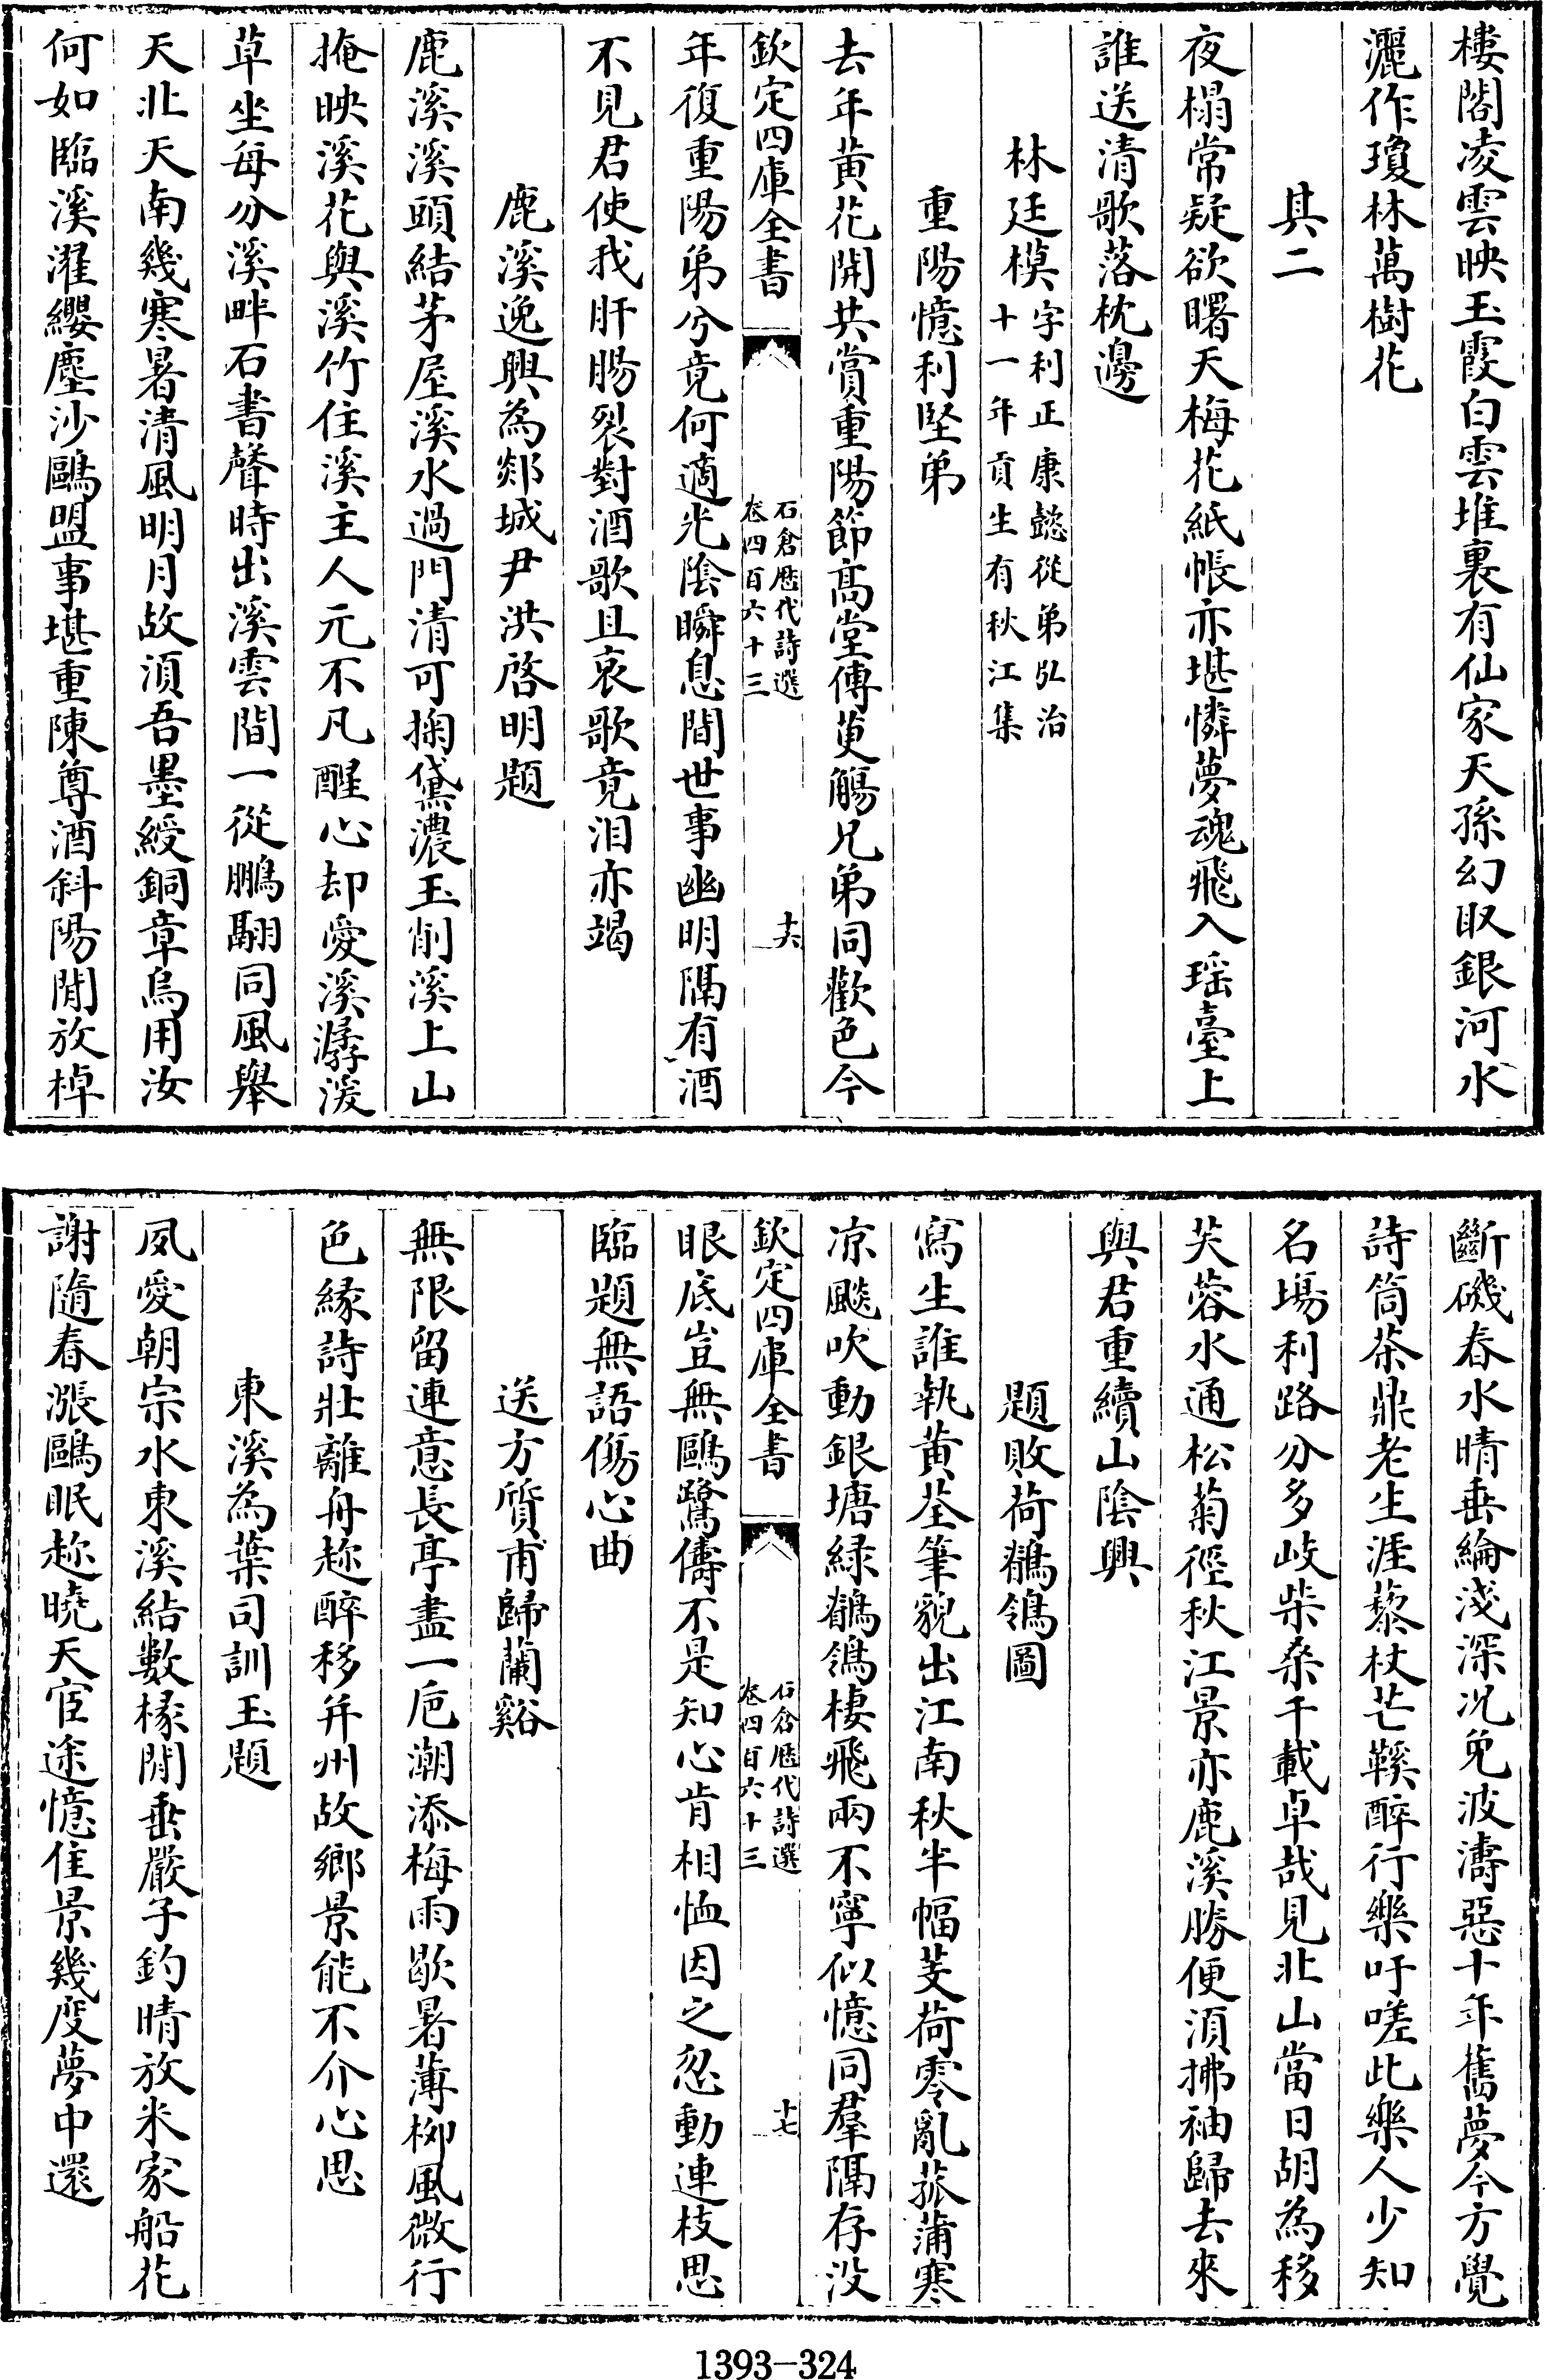 樓閣凌雲映玉霞白雲堆裏有仙家天孫幻取銀河水
灑作瓊林萬樹花
其二
夜榻常疑欲曙天梅花紙帳亦堪憐夢魂飛入瑶臺上
誰送清歌落枕邊
林廷模字利正康懿從弟弘治
十一年貢生有秋江集
重陽憶利堅弟
去年黄花開共賞重陽節髙堂傳萸觴兄弟同歡色今
欽定四庫全書
石倉歴代詩選
卷四百六十三
十六
年復重陽弟兮竟何適光陰瞬息間世事幽明隔有酒
不見君使我肝腸裂對酒歌且哀歌竟泪亦竭
鹿溪逸興為郯城尹洪啓明題
鹿溪溪頭結茅屋溪水過門清可掬黛濃玉削溪上山
掩映溪花與溪竹住溪主人元不凡醒心却愛溪潺湲
草坐每分溪畔石書聲時出溪雲間一從鵬翮同風舉
天北天南幾寒暑清風明月故湏吾墨綬銅章烏用汝
何如臨溪濯纓塵沙鷗盟事堪重陳尊酒斜陽閒放棹
斷磯春水晴垂綸淺深况免波濤惡十年舊夢今方覺
詩筒茶鼎老生涯藜杖芒鞵醉行樂吁嗟此樂人少知
名塲利路分多岐柴桑千載卓哉見北山當日胡為移
芙蓉水通松菊徑秋江景亦鹿溪勝便湏拂袖歸去來
與君重續山陰興
題敗荷鶺鴒圖
寫生誰執黄荃筆貌出江南秋半幅芰荷零亂菰蒲寒
凉飈吹動銀塘緑鶺鴒棲飛兩不寧似憶同羣隔存没
欽定四庫全書
石倉歴代詩選
卷四百六十三
十七
眼底豈無鷗鷺儔不是知心肯相恤因之忽動連枝思
臨題無語傷心曲
送方質甫歸蘭谿
無限留連意長亭盡一巵潮添梅雨歇暑薄柳風微行
色緣詩壯離舟趂醉移并州故鄉景能不介心思
東溪為葉司訓玉題
夙愛朝宗水東溪結數椽閒垂嚴子釣晴放米家船花
謝隨春漲鷗眠趂曉天宦途憶佳景幾度夢中還
1393-324